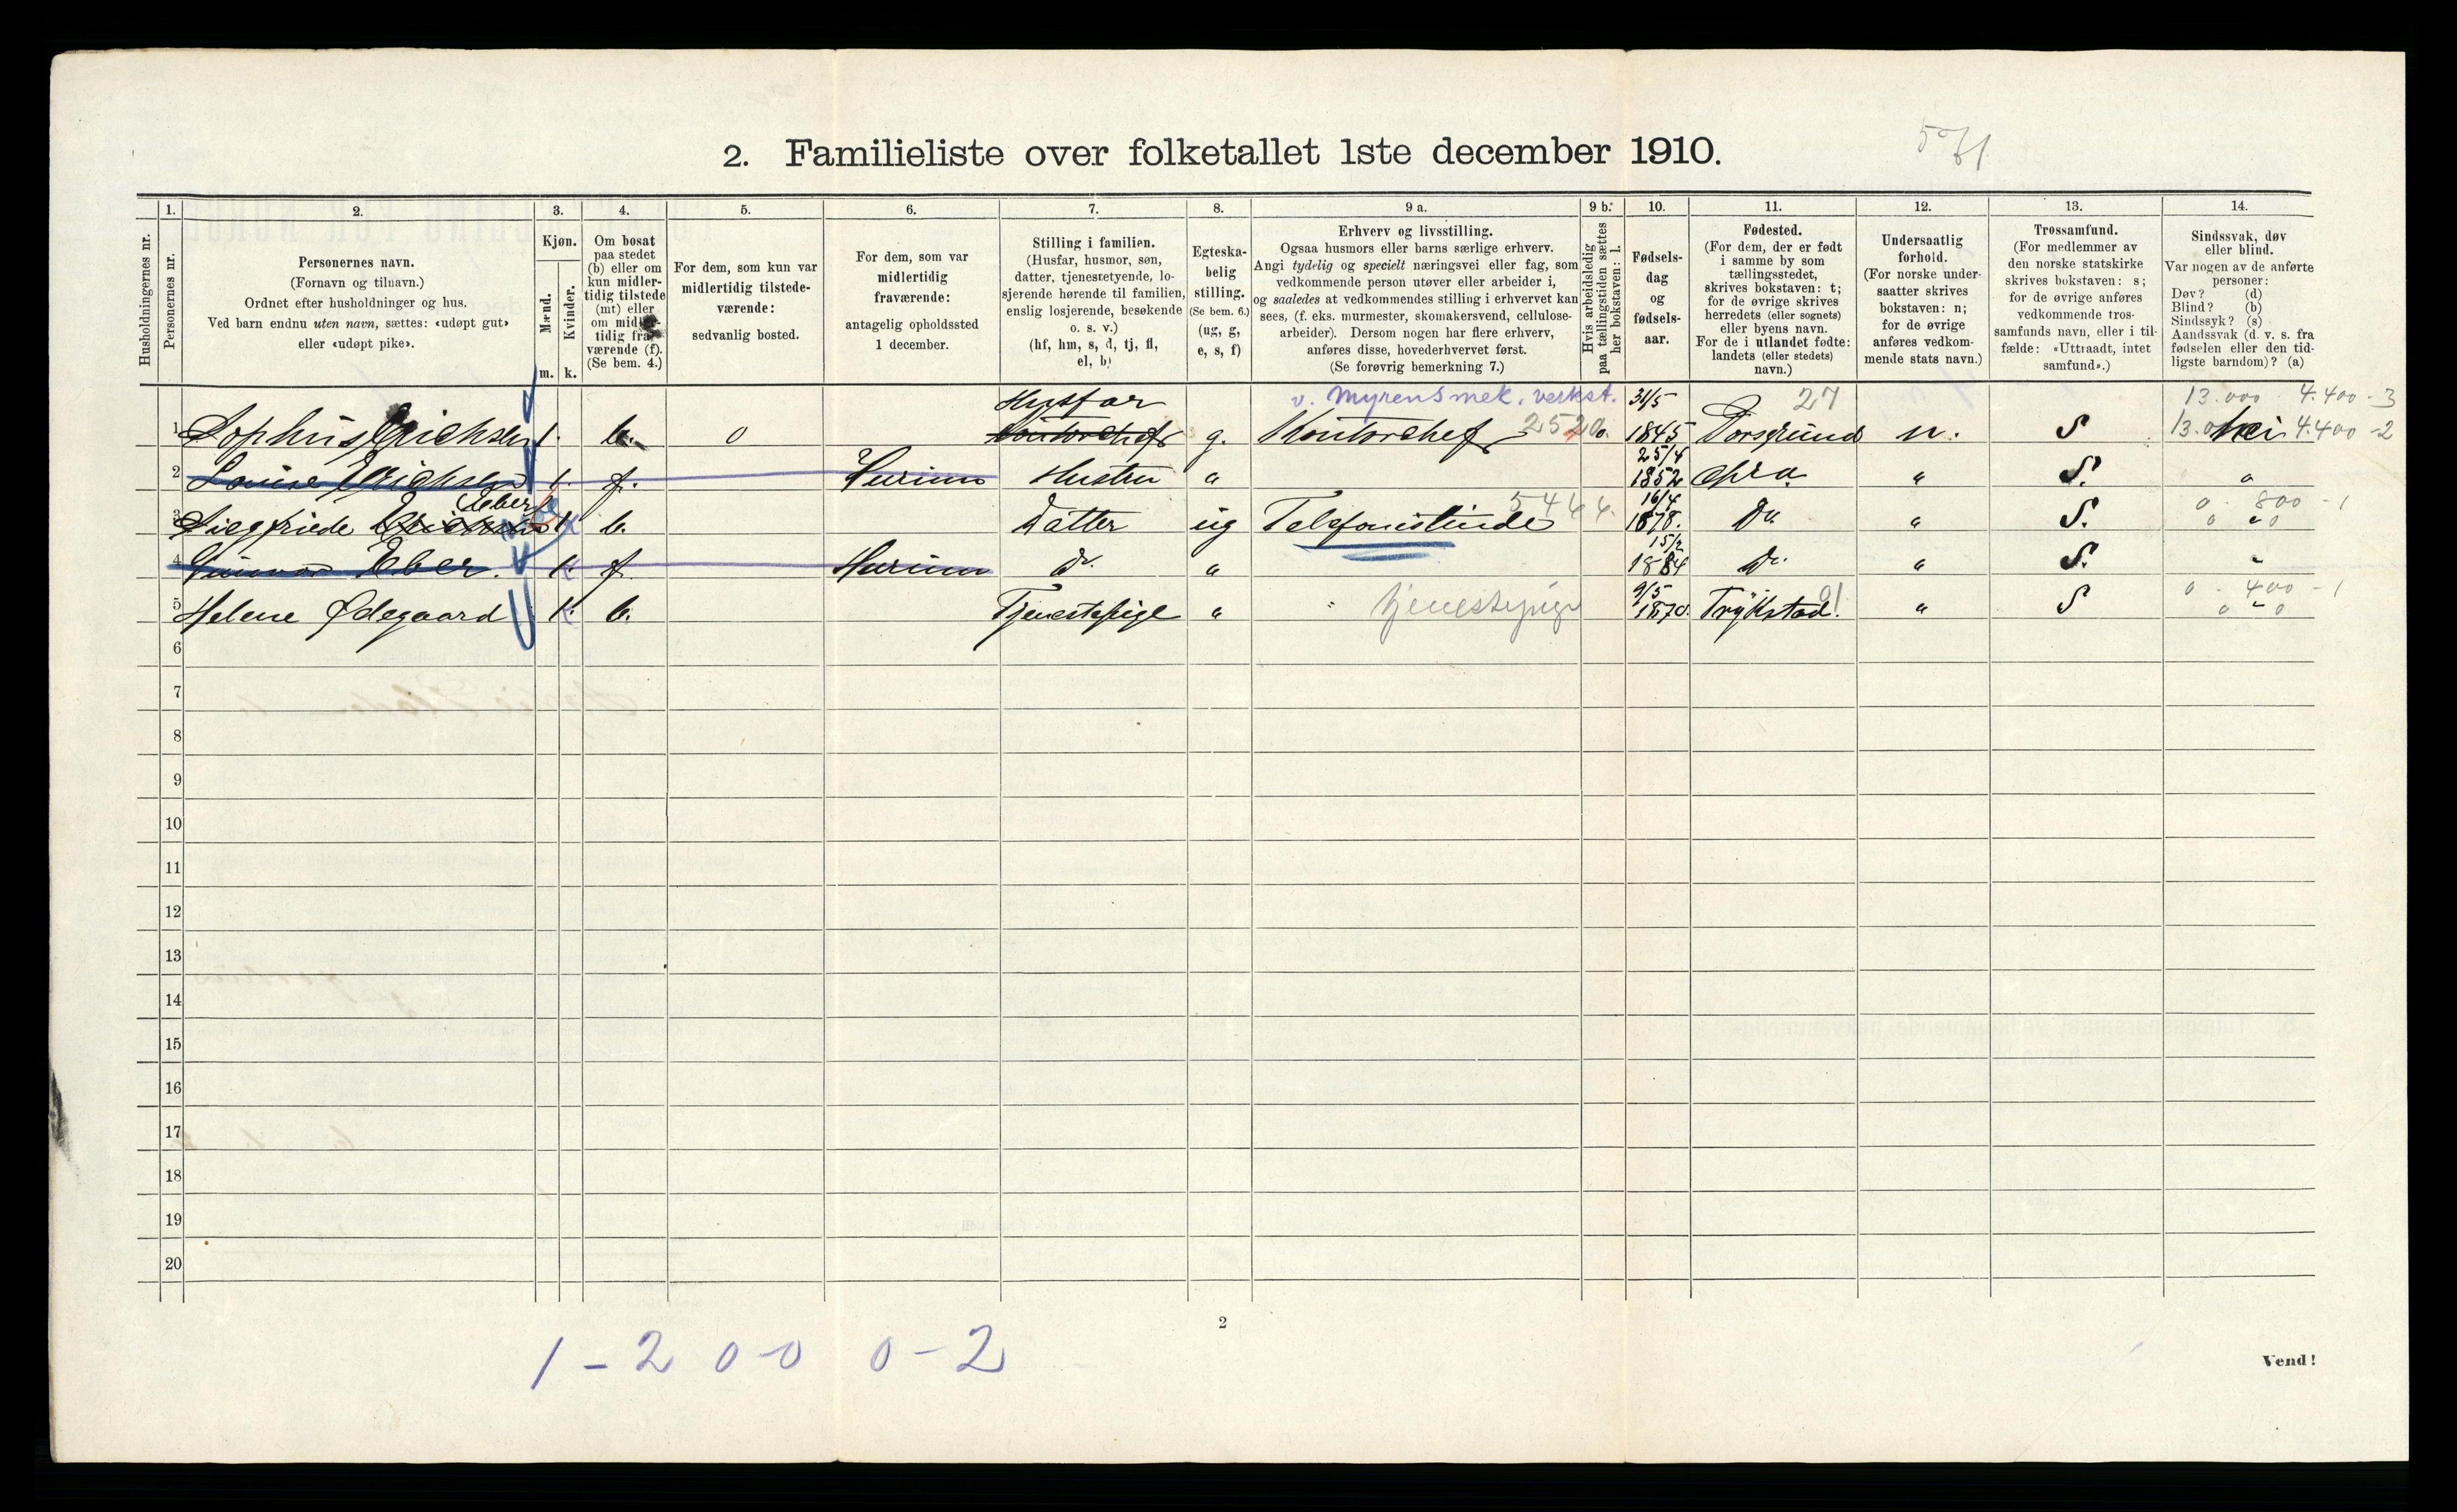 2. Familieliste over folketallet 1ste december 1910.
Husholdningernes nr.
1.
Personernes nr.
2.
Personernes navn.
(Fornavn og tilnavn.)
Ordnet efter husholdninger og hus.
Ved barn endnu uten navn, sættes: «udøpt gut»
eller «udøpt pike».
3.
Kjøn.
Mænd.
Kvinder.
m. k.
4.
Om bosat
paa stedet
(b) eller om
kun midler-
tidig tilstede
(mt) eller
om midler-
tidig fra-
værende (f).
(Se bem. 4.)
5.
For dem, som kun var
midlertidig tilstede-
værende:
sedvanlig bosted.
6.
For dem, som var
midlertidig
fraværende:
antagelig opholdssted
1 december.
7.
Stilling i familien.
(Husfar, husmor, søn,
datter, tjenestetyende, lo-
sjerende hørende til familien,
enslig losjerende, besøkende
o. s. v.)
(hf, hm, s, d, tj, fl,
el, b)
8.
Egteska-
belig
stilling.
(Se bem. 6.)
(ug, g,
e, s, f)
9 a.
Erhverv og livsstilling.
Ogsaa husmors eller barns særlige erhverv.
Angi tydelig og specielt næringsvei eller fag, som
vedkommende person utøver eller arbeider i,
og saaledes at vedkommendes stilling i erhvervet kan
sees, (f. eks. murmester, skomakersvend, cellulose-
arbeider). Dersom nogen har flere erhverv,
anføres disse, hovederhvervet først.
(Se forøvrig bemerkning 7.)
9 b.
Hvis arbeidsledig
paa tællingstiden sættes
her bokstaven: l.
10.
Fødsels-
dag
og
fødsels-
aar.
11.
Fødested.
(For dem, der er født
i samme by som
tællingsstedet,
skrives bokstaven: t;
for de øvrige skrives
herredets (eller sognets)
eller byens navn.
For de i utlandet fødte:
landets (eller stedets)
navn.)
12.
Undersaatlig
forhold.
(For norske under-
saatter skrives
bokstaven: n;
for de øvrige
anføres vedkom-
mende stats navn.)
13.
Trossamfund.
(For medlemmer av
den norske statskirke
skrives bokstaven: s;
for de øvrige anføres
vedkommende tros-
samfunds navn, eller i til-
fælde: «Uttraadt, intet
samfund».)
14.
Sindssvak, døv
eller blind.
Var nogen av de anførte
personer:
Døv? (d)
Blind? (b)
Sindssyk? (s)
Aandssvak (d. v. s. fra
fødselen eller den tid-
ligste barndom)? (a)
Husfar v. Myrens mek. verkst. 31/5 27 13.000 4.400 - 3
1 Sophus Erichsen 1. b. 0 Kontorchef g. Kontorchef 2520. 1845 Porsgrund n. S 13.0 nei 4.400 - 2
25/4
2 Louise Erichsen 1. f. Hurum Hustru " 1852 Chra " S. "
Eber 16/4 0 - 800 - 1
3 Siegfriede Erichsen 1. b. Datter ug Telefonistinde 5444. 1878. Do. " S. 0 " 0
15/2
4 Gunvor Eber. 1. f. Hurum do. " 1884 Do. " S. "
9/5 91 0 - 400 - 1
5 Helene Ødegaard 1. b. Tjenestepige " " tjenestepige 1870. Trykstad. " S 0 - 0
6
7
8
9
10
11
12
13
14
15
16
17
18
19
20
2
1 - 2 0 - 0 0 - 2
Vend!